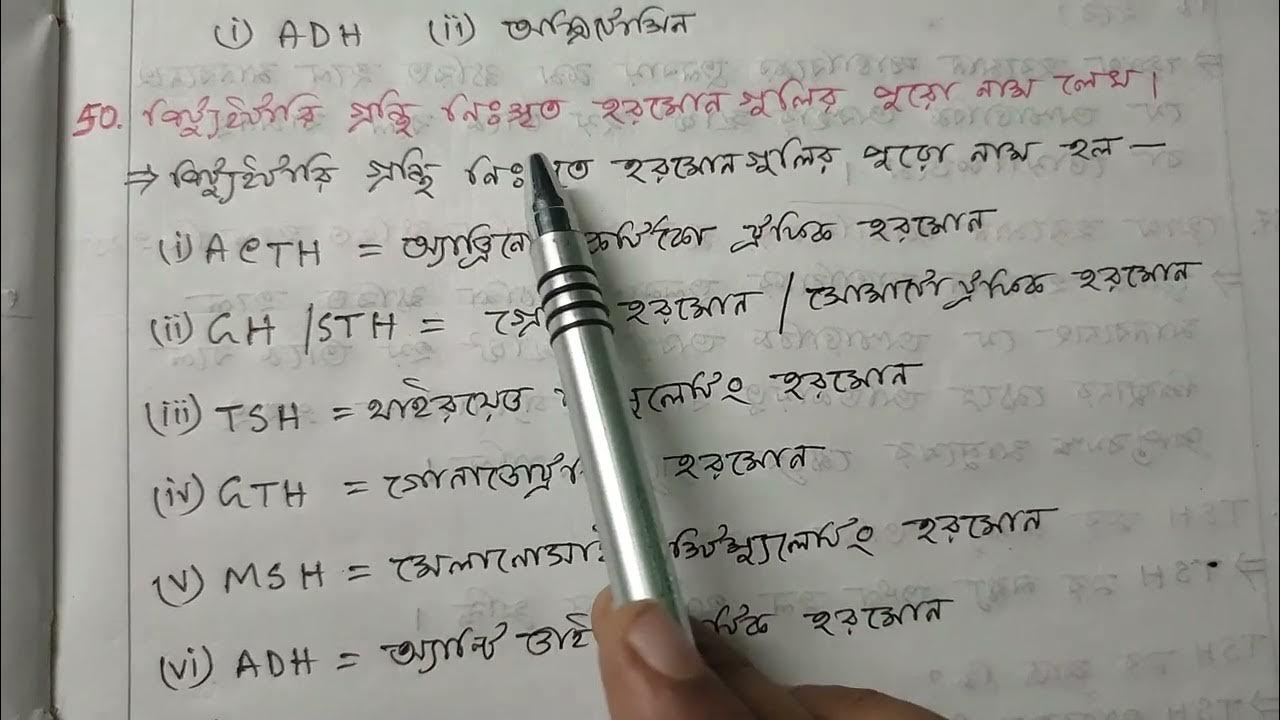 (i) ADH (ii) অক্সিটোসিন
50. পিট্যুইটারি গ্রন্থি নিঃসৃত হরমোন গুলির পুরো নাম লেখ।
⇒ পিট্যুইটারি গ্রন্থি নিঃ তে হরমোন গুলির পুরো নাম হল —
(i) ACTH = অ্যাড্রিনো কর্টিকো ট্রফিক হরমোন
(ii) GH / STH = গ্রো হরমোন / সোমাটোট্রফিক হরমোন
(iii) TSH = থাইরয়েড লেটিং হরমোন
(iv) GTH = গোনাডোট্রফি হরমোন
(v) MSH = মেলানোসাই স্টিম্যুলেটিং হরমোন
(vi) ADH = অ্যান্টি ডাই টিক হরমোন